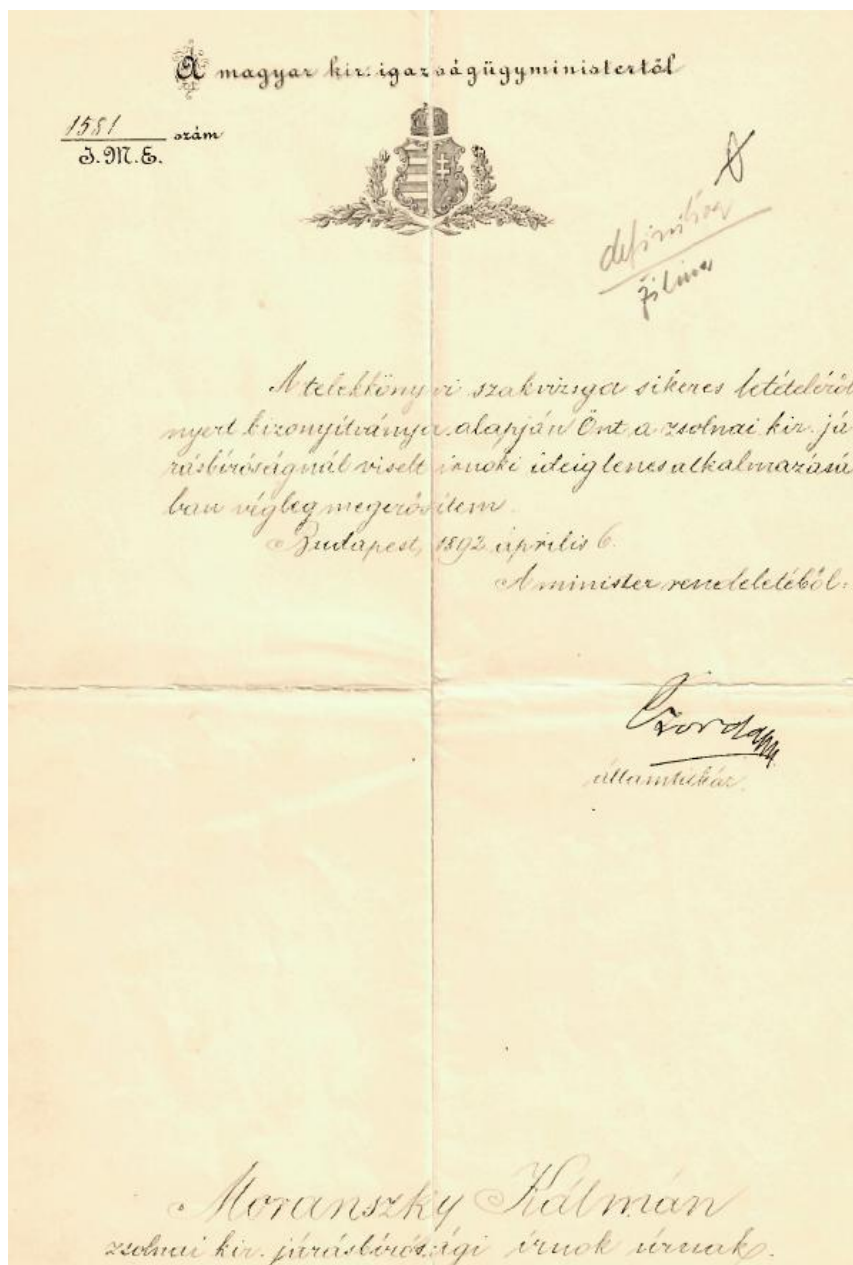 A magyar kir. igazságügyministertől
1581 szám
I.M.E.
definitiva
Žilina
A telekkönyvi szakvizsga sikeres letételéről
nyert bizonyítványa alapján Önt a zsolnai kir. já
rásbiróságnál viselt irnoki ideiglenes alkalmazásá
ban végleg megerősitem.
Budapest, 1892 április 6.
A minister rendeletéből:
államtitkár.
Moranszky Kálmán
zsolnai kir. járásbirósági irnok úrnak.